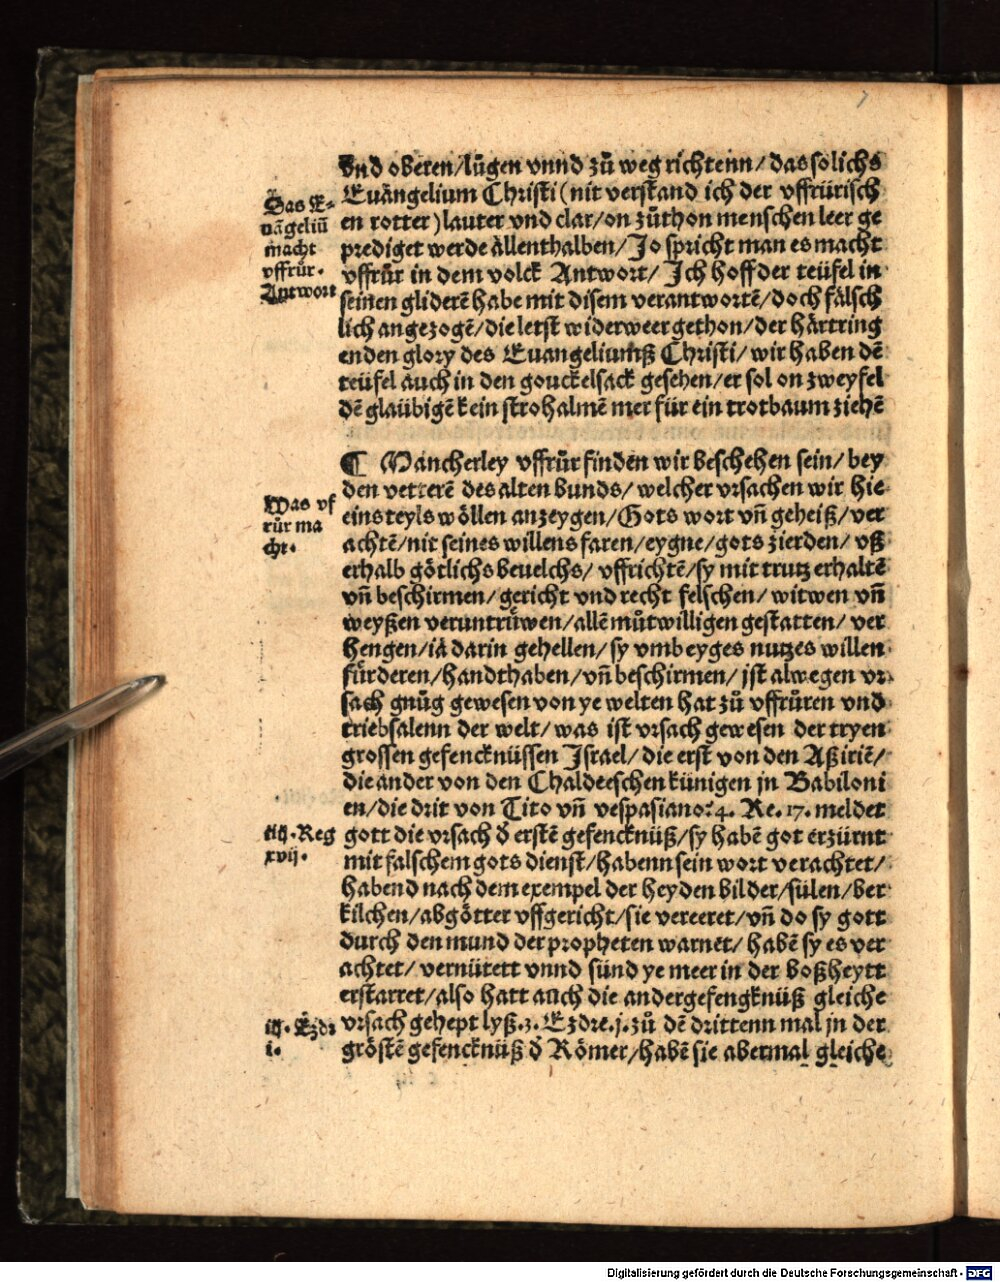 7
vnd oberen/lůgen vnnd zů weg richtenn/das solichs
Euangelium Christi (nit verstand ich der vffrürisch
en rotter) lauter vnd clar/on zůthon menschen leer ge
prediget werde allenthalben/Jo spricht man es macht
vffrůr in dem volck Antwort/ Jch hoff der teüfel in
seinen gliderē habe mit disem verantwortē/doch fälsch
lich angezogē/die letst widerweer gethon/der härtring
enden glory des Euangeliumß Christi/wir haben dē
teüfel auch in den gouckelsack gesehen/er sol on zweyfel
dē glaübigē kein strohalmē mer für ein trotbaum ziehē
Das E-
uāgeliū
macht
vffrůr.
Antwort
¶ Mancherley vffrůr finden wir beschehen sein/bey
den vetterē des alten bunds/welcher vrsachen wir hie
eins teyls wöllen anzeygen/Gots wort vñ geheiß/ver
achtē/nit seines willens faren/eygne/gots zierden/vß
erhalb götlichs beuelchs/vffrichtē/sy mit trutz erhaltē
vñ beschirmen/gericht vnd recht felschen/witwen vñ
weyßen veruntrüwen/allē můtwilligen gestatten/ver
hengen/ia darin gehellen/sy vmb eyges nutzes willen
fürderen/handthaben/vñ beschirmen/jst alwegen vr-
sach gnůg gewesen von ye welten hat zů vffrůren vnd
triebsalenn der welt/was ist vrsach gewesen der tryen
grossen gefencknüssen Jsrael/die erst von den Aßiriē/
die ander von den Chaldeeschen künigen jn Babiloni
en/die drit von Tito vñ vespasiano: 4. Re. 17. meldet
gott die vrsach d̄ erstē gefencknüß/sy habē got erzürnt
mit falschem gots dienst/habenn sein wort verachtet/
habend nach dem exempel der heyden bilder/sülen/ber
kilchen/abgötter vffgericht/sie vereeret/vñ do sy gott
durch den mund der propheten warnet/habē sy es ver
achtet/vernütett vnnd sünd ye meer in der boßheytt
erstarret/also hatt auch die ander gefengknüß gleiche
vrsach gehept lyß. 3. Ezdre. j. zů dē drittenn mal jn der
gröstē gefencknüß d̄ Römer/habē sie abermal gleiche
Was vf
růr ma
cht.
iiij. Reg
xvij.
iij. Ezdr
i.
Digitalisierung gefördert durch die Deutsche Forschungsgemeinschaft - DFG